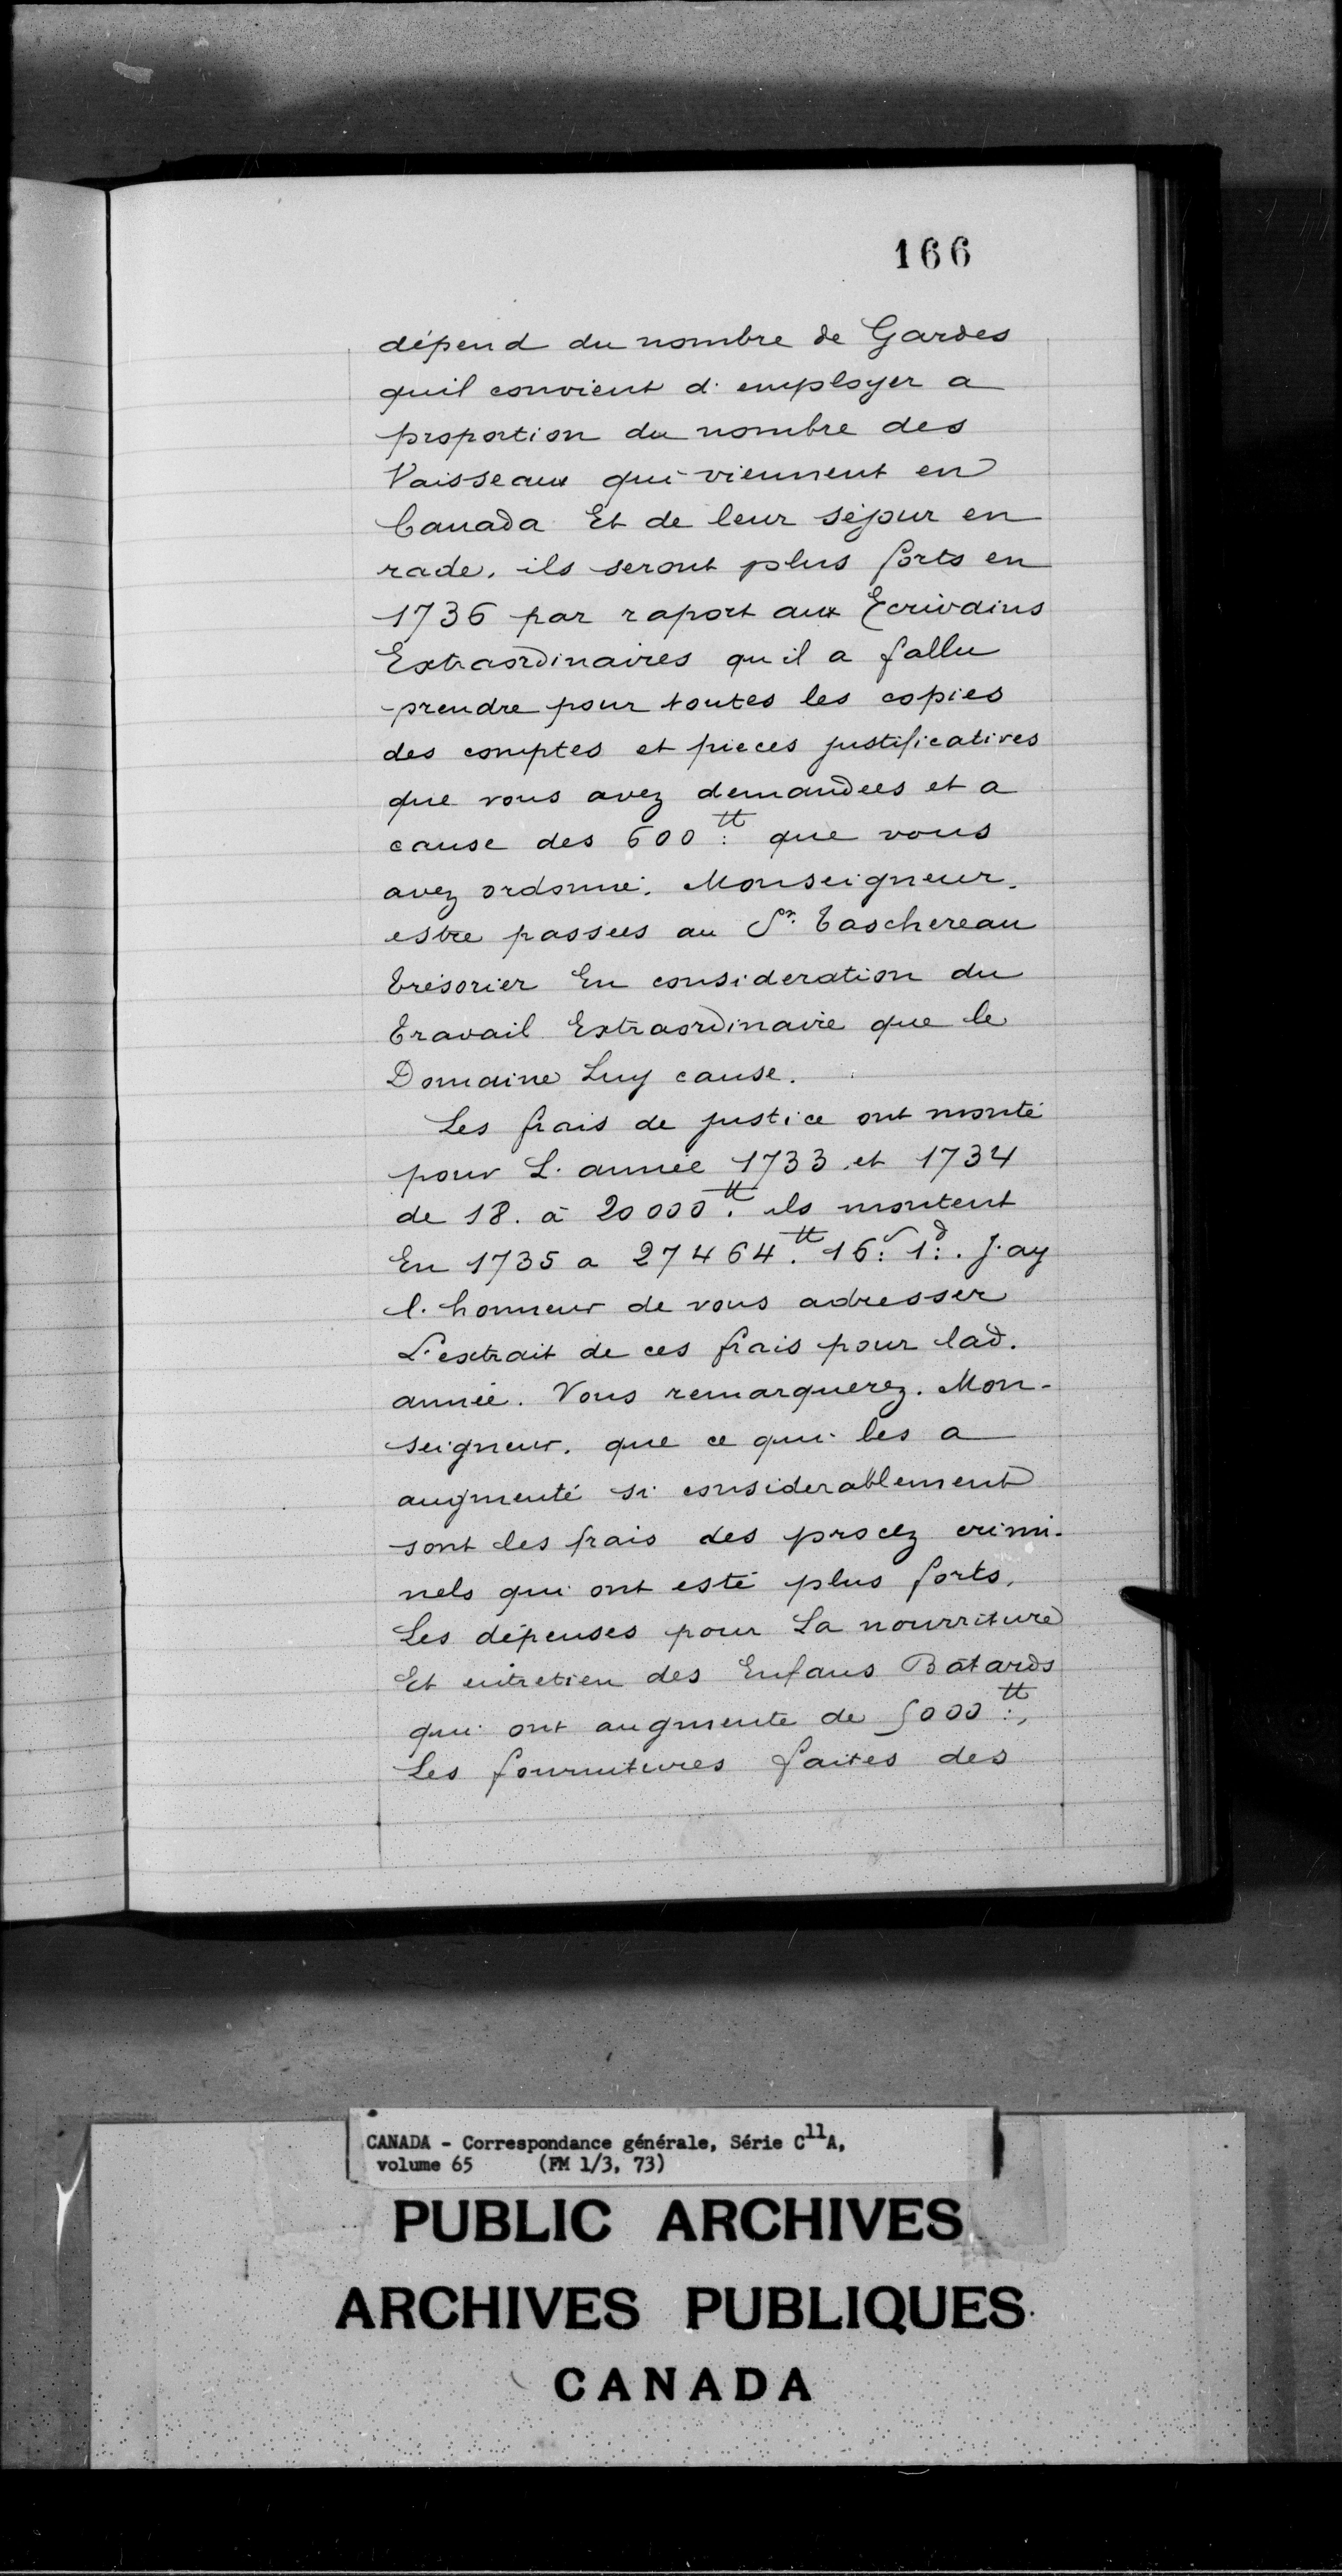 166
dépend du nombre de Gardes
quil convient d'employer a
proportion du nombre des
Vaisseaux qui viennent en
Canada Et de leur séjour en
rade, ils seront plus forts en
1736 par raport aux Ecrivains
Extraordinaires qu'il a fallu
prendre pour toutes les copies
des comptes et pieces justificatives
que vous avez demandées et a
cause des 600tt: que vous
avez ordonné, Monseigneur,
estre passees au Sr. Taschereau
trésorier En consideration du
travail Extraordinaire que le
Domaine Luy cause.
Les frais de justice ont monté
pour L'année 1733 et 1734
de 18. à 20000tt. ils montent
En 1735 a 27464tt. 16s: 1d:. J'ay
l'honneur de vous adresser
L'extrait de ces frais pour lad.
année. Vous remarquerez. Mon-
seigneur. que ce qui les a
augmenté si considerablement
sont les frais des procez crimi-
nels qui ont esté plus forts,
Les dépenses pour La nourriture
Et entretien des Enfans Bâtards
qui ont augmente de 5000tt:,
Les fournitures faites des
CANADA - Correspondance générale, Série C11A,
volume 65 (FM 1/3, 73)
PUBLIC ARCHIVES
ARCHIVES PUBLIQUES
CANADA